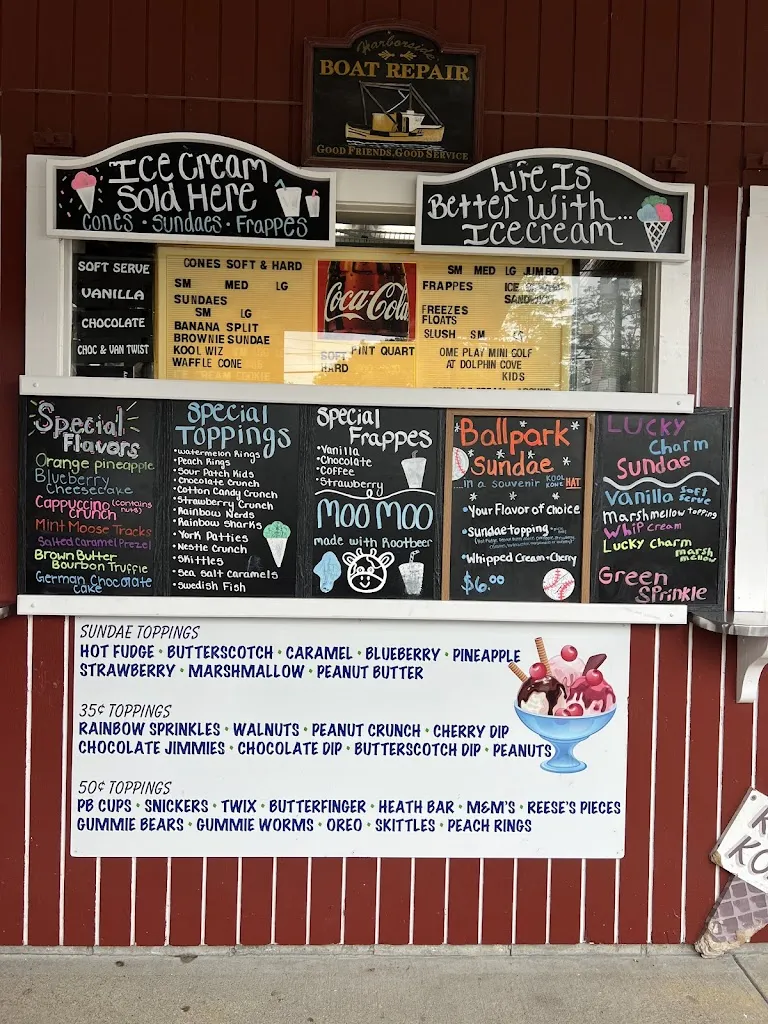 Harborside
BOAT REPAIR
GOOD FRIENDS, GOOD SERVICE
ICE CREAM
Sold Here
CONES • SUNDAES • FRAPPES
Life Is
Better With...
Icecream
SOFT SERVE
VANILLA
CHOCOLATE
CHOC & VAN TWIST
CONES SOFT & HARD
SM MED LG
SUNDAES
SM LG
BANANA SPLIT
BROWNIE SUNDAE
KOOL WIZ
WAFFLE CONE
Coca-Cola
SOFT PINT QUART
HARD
SM MED LG JUMBO
FRAPPES ICE
SANDWICH
FREEZES
FLOATS
SLUSH SM
OME PLAY MINI GOLF
AT DOLPHIN COVE
KIDS
Special
Flavors
Orange pineapple
Blueberry
Cheesecake
Cappuccino (contains
Crunch nuts)
Mint Moose Tracks
Salted Caramel Prezel
Brown Butter
Bourbon Truffle
German Chocolate
Cake
Special
Toppings
• Watermelon Rings
• Peach Rings
• Sour Patch Kids
• Chocolate Crunch
• Cotton Candy Crunch
• Strawberry Crunch
• Rainbow Nerds
• Rainbow Sharks
• York Patties
• Nestle Crunch
• Skittles
• Sea Salt Caramels
• Swedish Fish
Special
Frappes
• Vanilla
• Chocolate
• Coffee
• Strawberry
MOO MOO
made with Rootbeer
Ballpark
Sundae
in a souvenir KOOL
KONE HAT
• Your Flavor of choice
• Sundae topping
• Whipped Cream + Cherry
$6.00
LUCKY
Charm
SUNDAE
Vanilla Soft
Serve
Marshmellow topping
Whip Cream
Lucky Charm
marsh
mellow
Green
Sprinkle
SUNDAE TOPPINGS
HOT FUDGE • BUTTERSCOTCH • CARAMEL • BLUEBERRY • PINEAPPLE
STRAWBERRY • MARSHMALLOW • PEANUT BUTTER
35¢ TOPPINGS
RAINBOW SPRINKLES • WALNUTS • PEANUT CRUNCH • CHERRY DIP
CHOCOLATE JIMMIES • CHOCOLATE DIP • BUTTERSCOTCH DIP • PEANUTS
50¢ TOPPINGS
PB CUPS • SNICKERS • TWIX • BUTTERFINGER • HEATH BAR • M&M'S • REESE'S PIECES
GUMMIE BEARS • GUMMIE WORMS • OREO • SKITTLES • PEACH RINGS
K
KO